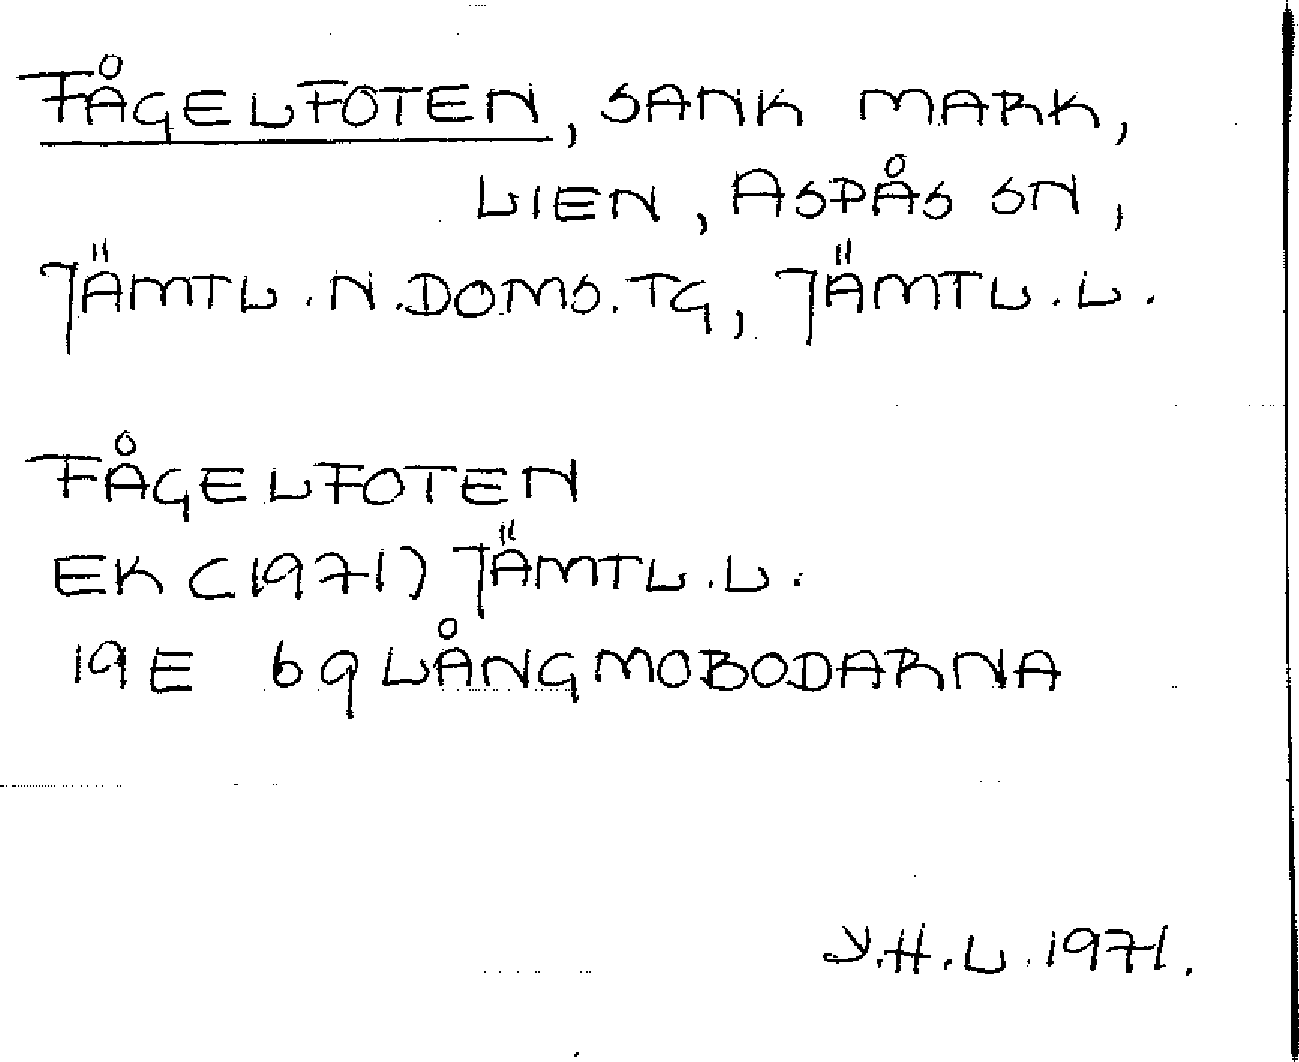 FÅGELFOTEN, SANK MARK,
LIEN, ASPÅS SN,
JÄMTL. N. DOMS. TG, JÄMTL. L.
FÅGELFOTEN
EK (1971) JÄMTL. L.
19E 6g LÅNGMOBODARNA
Y.H.L. 1971.